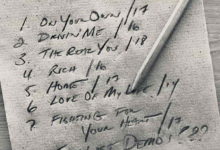 1. ON YOUR OWN /17
2 DRIVIN ME /16
3. THE REAL YOU /18
4 RICH /16
5 HOME /17
6 LOVE OF MY LIFE /14
7 FIGHTING FOR
YOUR HEART /17
DEMOS ???